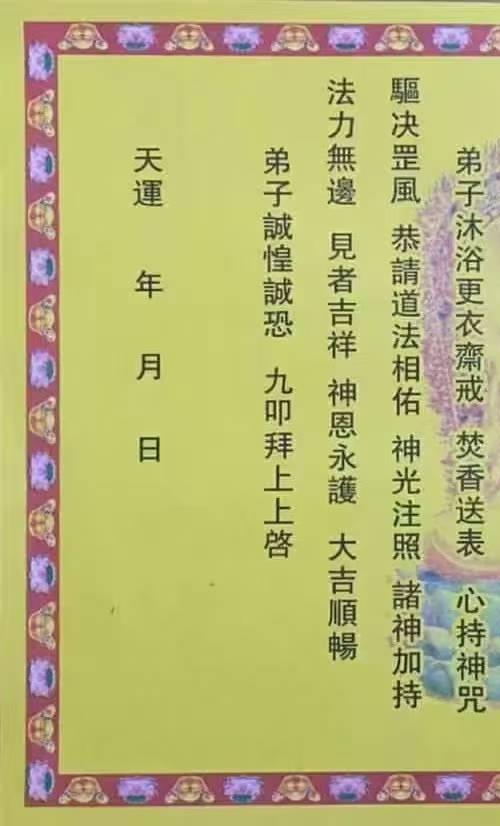 弟子沐浴更衣齋戒 焚香送表 心持神咒
驅决罡風 恭請道法相佑 神光注照 諸神加持
法力無邊 見者吉祥 神恩永護 大吉順暢
弟子誠惶誠恐 九叩拜上上啓
天運 年 月 日